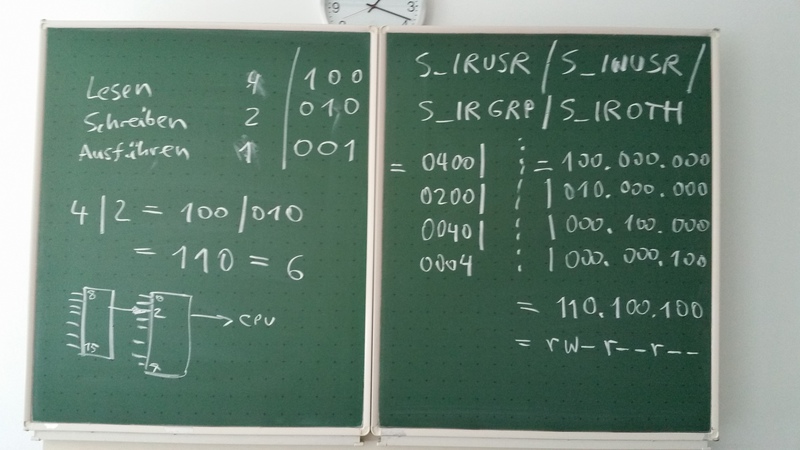 Lesen 4 | 100
Schreiben 2 | 010
Ausführen 1 | 001
4 | 2 = 100 | 010
= 110 = 6
8 0
2 → CPU
15 7
9 3
S_IRUSR / S_IWUSR /
S_IRGRP / S_IROTH
= 0400 | = 100.000.000
0200 | | 010.000.000
0040 | | 000.100.000
0004 | 000.000.100
= 110.100.100
= rw-r--r--